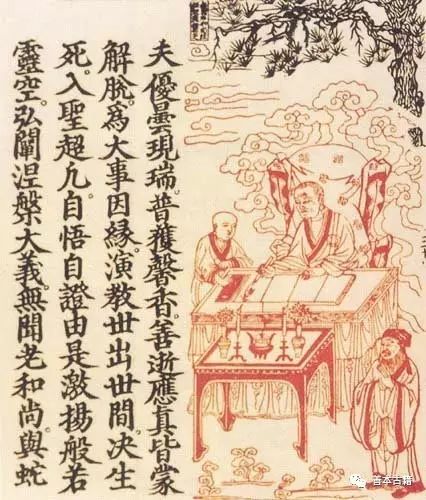 夫優曇現瑞。普獲馨香。善逝應真皆蒙
解脫。爲大事因縁。演教世出世間。决生
死。入聖超凢。自悟自證由是激揚般若
靈空。弘闡涅槃大義。無聞老和尚。與蛇
善本古籍